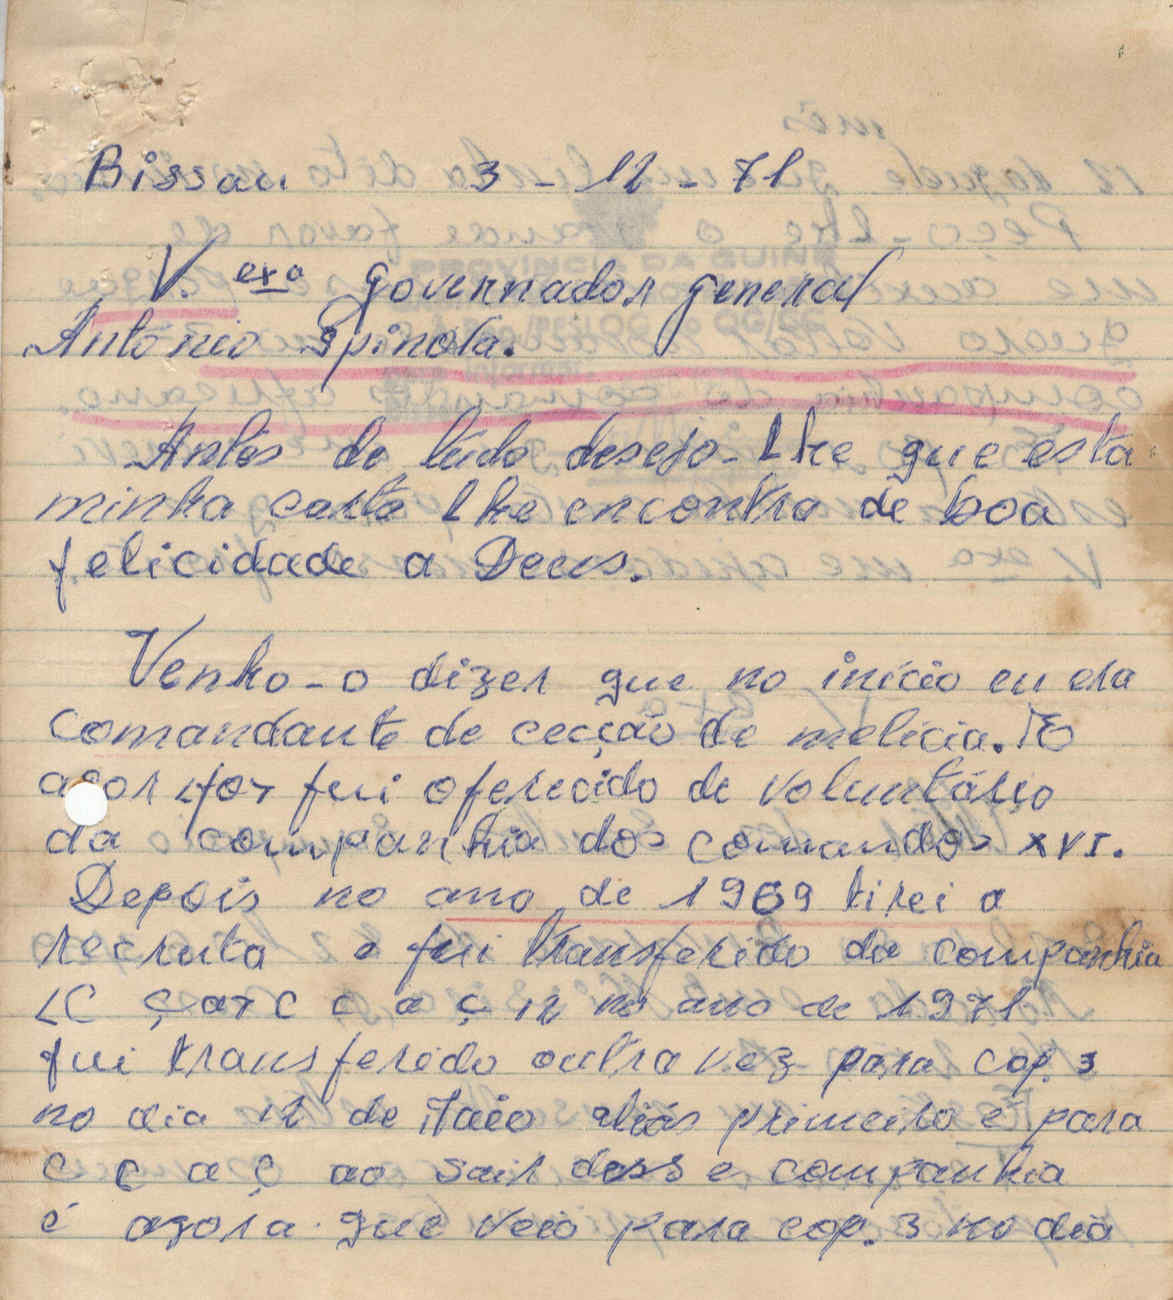 Bissau 3 - 12 - 71
V. exa governador general
António Spinola.
Antes de tudo desejo-lhe que esta
minha carta lhe encontra de boa
felicidade a Deus.
Venho-o dizer que no início eu era
comandante de cecção de melicia. E
fui oferecido de voluntário
da companhia dos comandos XVI.
Depois no ano de 1969 tirei a
recruta e fui transferido da companhia
C ç no ano de 1971
fui transferido outra vez para cop. 3
no dia 12 de aliás primeiro e para
c c a ç ao sair desse companhia
é agora que veio para cop. 3 no dia